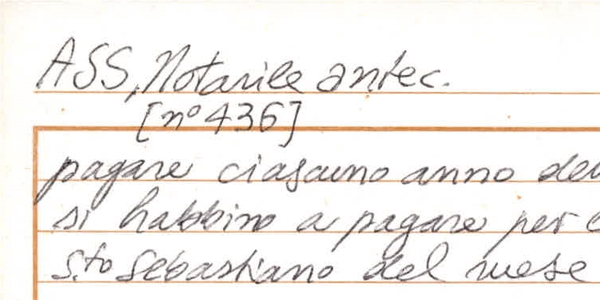 ASS, Notarile antec.
[n° 436]
pagare ciascuno anno del
si habbino a pagare per
s.to Sebastiano del mese